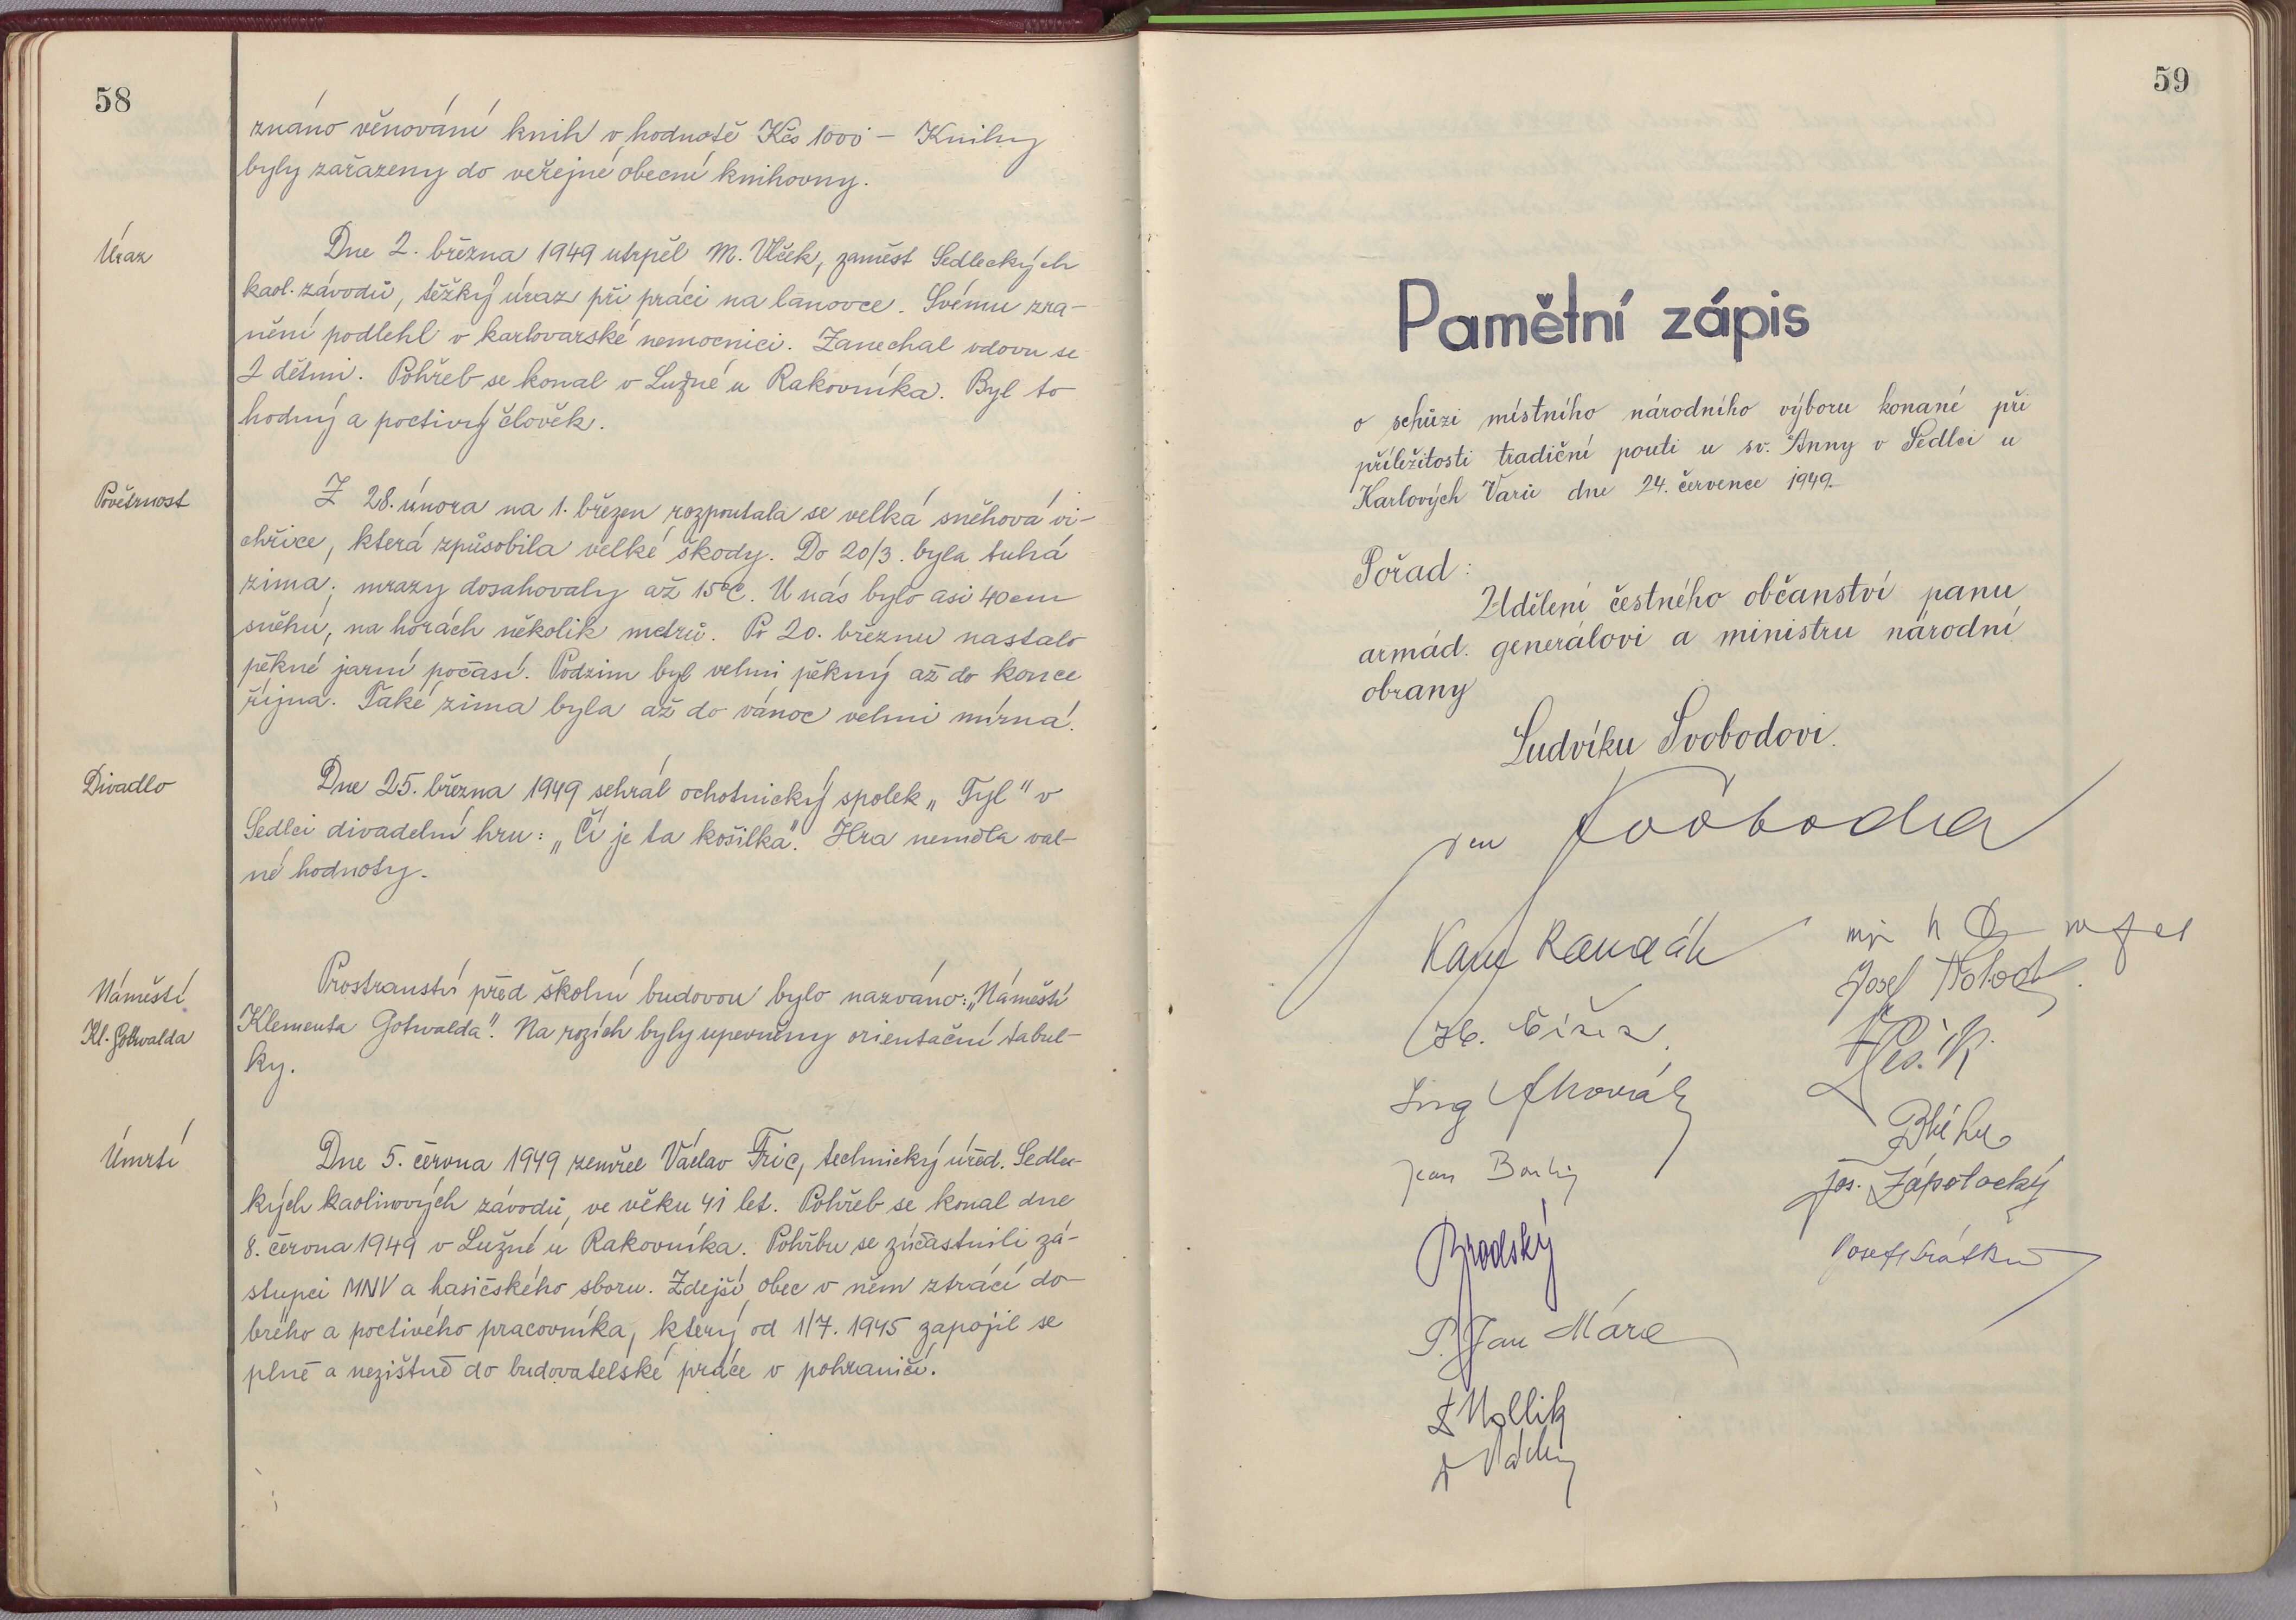 58
znáno věnování knih v hodnotě Kčs 1000 - Knihy
byly zařazeny do veřejné obecní knihovny.
Úraz
Dne 2. března 1949 utrpěl M. Vlček, zaměst Sedleckých
kaol. závodů, těžký úraz při práci na lanovce. Svému zra-
nění podlehl v karlovarské nemocnici. Zanechal vdovu se
2 dětmi. Pohřeb se konal v Lužné u Rakovníka. Byl to
hodný a poctivý člověk.
Povětrnost
Z 28. února na 1. březen rozpoutala se velká sněhová vi-
chřice, která způsobila velké škody. Do 20/3. byla tuhá
zima; mrazy dosahovaly až 15°C. U nás bylo asi 40 cm
sněhu, na horách několik metrů. Po 20. březnu nastalo
pěkné jarní počasí. Podzim byl velmi pěkný až do konce
října. Také zima byla až do vánoc velmi mírná.
Divadlo
Dne 25. března 1949 sehrál ochotnický spolek „Tyl" v
Sedlci divadelní hru: „Čí je ta košilka". Hra neměla val-
né hodnoty.
Náměstí
Kl. Gottwalda
Prostranství před školní budovou bylo nazváno: „Náměstí
Klementa Gotwalda". Na rozích byly upevněny orientační tabul-
ky.
Úmrtí
Dne 5. června 1949 zemřel Václav Fric, technický úřed. Sedlec-
kých kaolinových závodů, ve věku 41 let. Pohřeb se konal dne
8. června 1949 v Lužné u Rakovníka. Pohřbu se zúčastnili zá-
stupci MNV a hasičského sboru. Zdejší obec v něm ztrácí do-
brého a poctivého pracovníka, který od 1/7. 1945 zapojil se
plně a nezištně do budovatelské práce v pohraničí.
59
Pamětní zápis
o schůzi místního národního výboru konané při
příležitosti tradiční pouti u sv. Anny v Sedlci u
Karlových Varů dne 24. července 1949.
Pořad:
Udělení čestného občanství panu
armád. generálovi a ministru národní
obrany
Ludvíku Svobodovi.
Svoboda
Karel
Josef
Ing
Bláha
Jos. Zápotocký
Brodský
Josef
P. Jan Mára